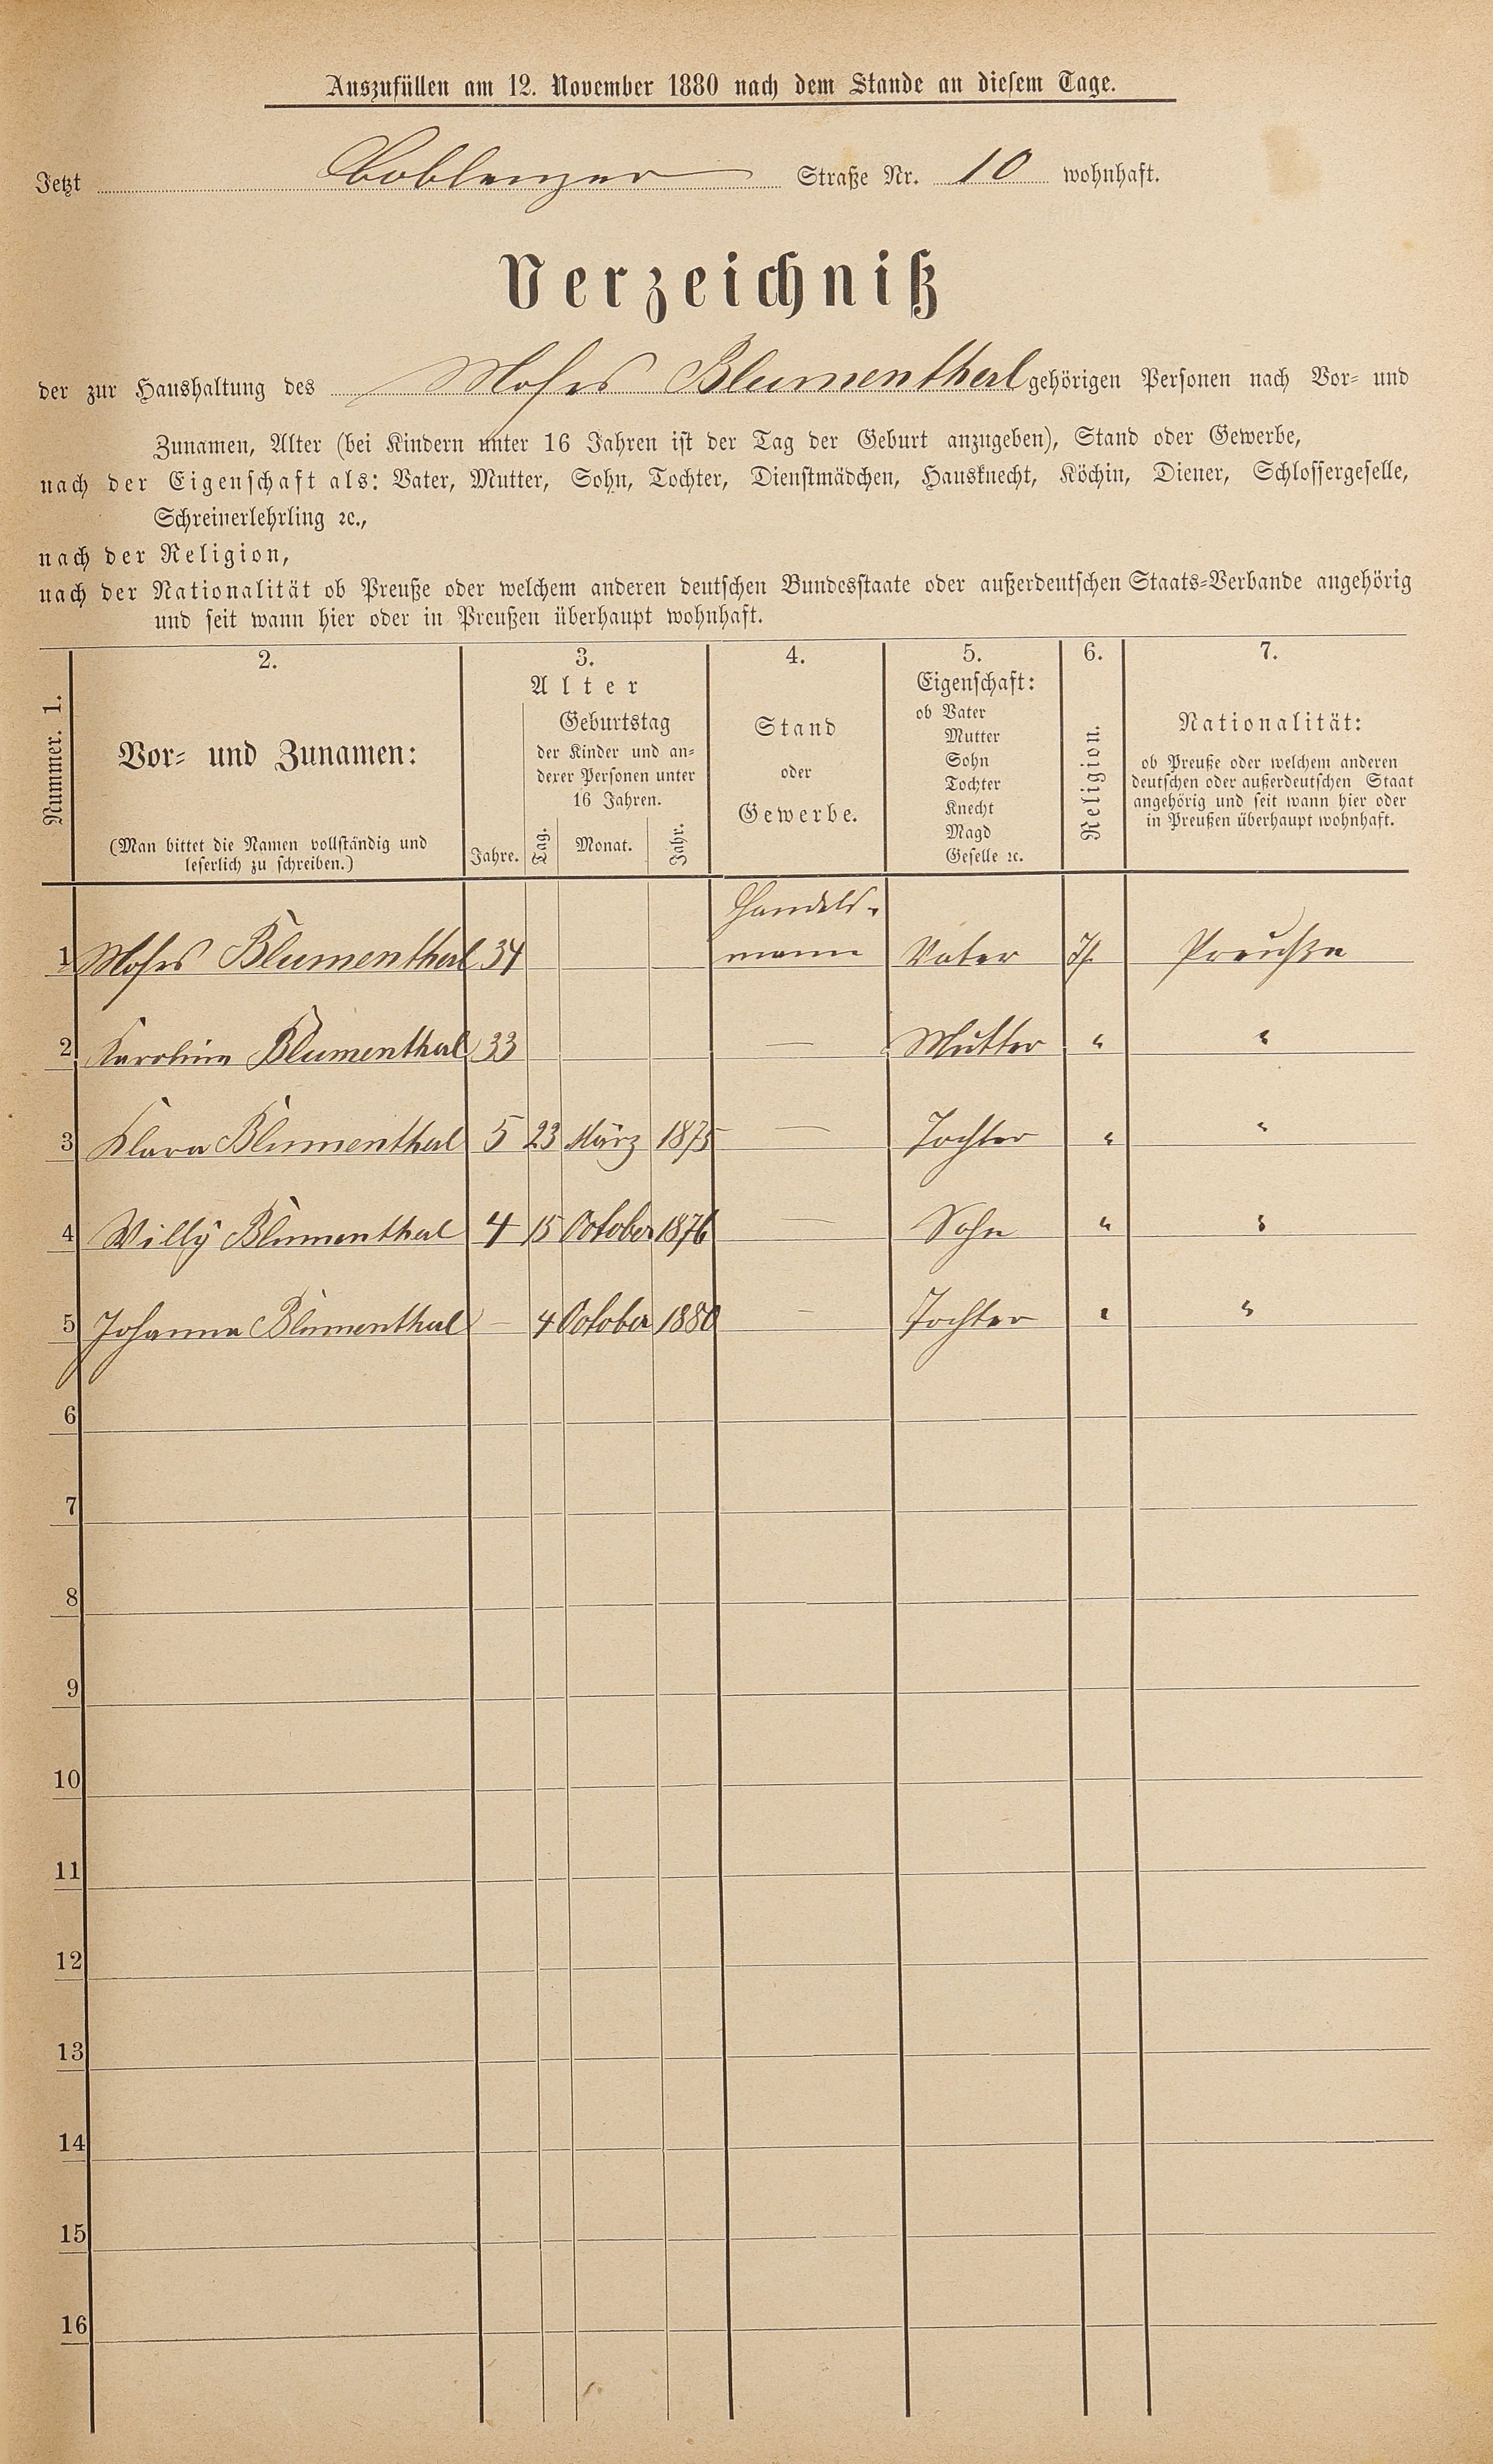 Auszufüllen am 12. November 1880 nach dem Stande an diesem Tage.
Jetzt Coblenzer Straße Nr. 10 wohnhaft.
Verzeichniß
der zur Haushaltung des Moses Blumenthal gehörigen Personen nach Vor- und
Zunamen, Alter (bei Kindern unter 16 Jahren ist der Tag der Geburt anzugeben), Stand oder Gewerbe,
nach der Eigenschaft als: Vater, Mutter, Sohn, Tochter, Dienstmädchen, Hausknecht, Köchin, Diener, Schlossergeselle,
Schreinerlehrling ꝛc.,
nach der Religion,
nach der Nationalität ob Preuße oder welchem anderen deutschen Bundesstaate oder außerdeutschen Staats-Verbande angehörig
und seit wann hier oder in Preußen überhaupt wohnhaft.
Nummer. 1.
2.
Vor- und Zunamen:
(Man bittet die Namen vollständig und
leserlich zu schreiben.)
3.
Alter
Jahre.
Geburtstag
der Kinder und an-
derer Personen unter
16 Jahren.
Tag. Monat. Jahr.
4.
Stand
oder
Gewerbe.
5.
Eigenschaft:
ob Vater
Mutter
Sohn
Tochter
Knecht
Magd
Geselle ꝛc.
6.
Religion.
7.
Nationalität:
ob Preuße oder welchem anderen
deutschen oder außerdeutschen Staat
angehörig und seit wann hier oder
in Preußen überhaupt wohnhaft.
Handels-
1 Moses Blumenthal 34 mann Vater Is. Preußen
2 Karolina Blumenthal 33 — Mutter " "
3 Klara Blumenthal 5 23 März 1875 — Tochter " "
4 Willy Blumenthal 4 15 October 1876 — Sohn " "
5 Johanna Blumenthal — 4 October 1880 — Tochter " "
6
7
8
9
10
11
12
13
14
15
16